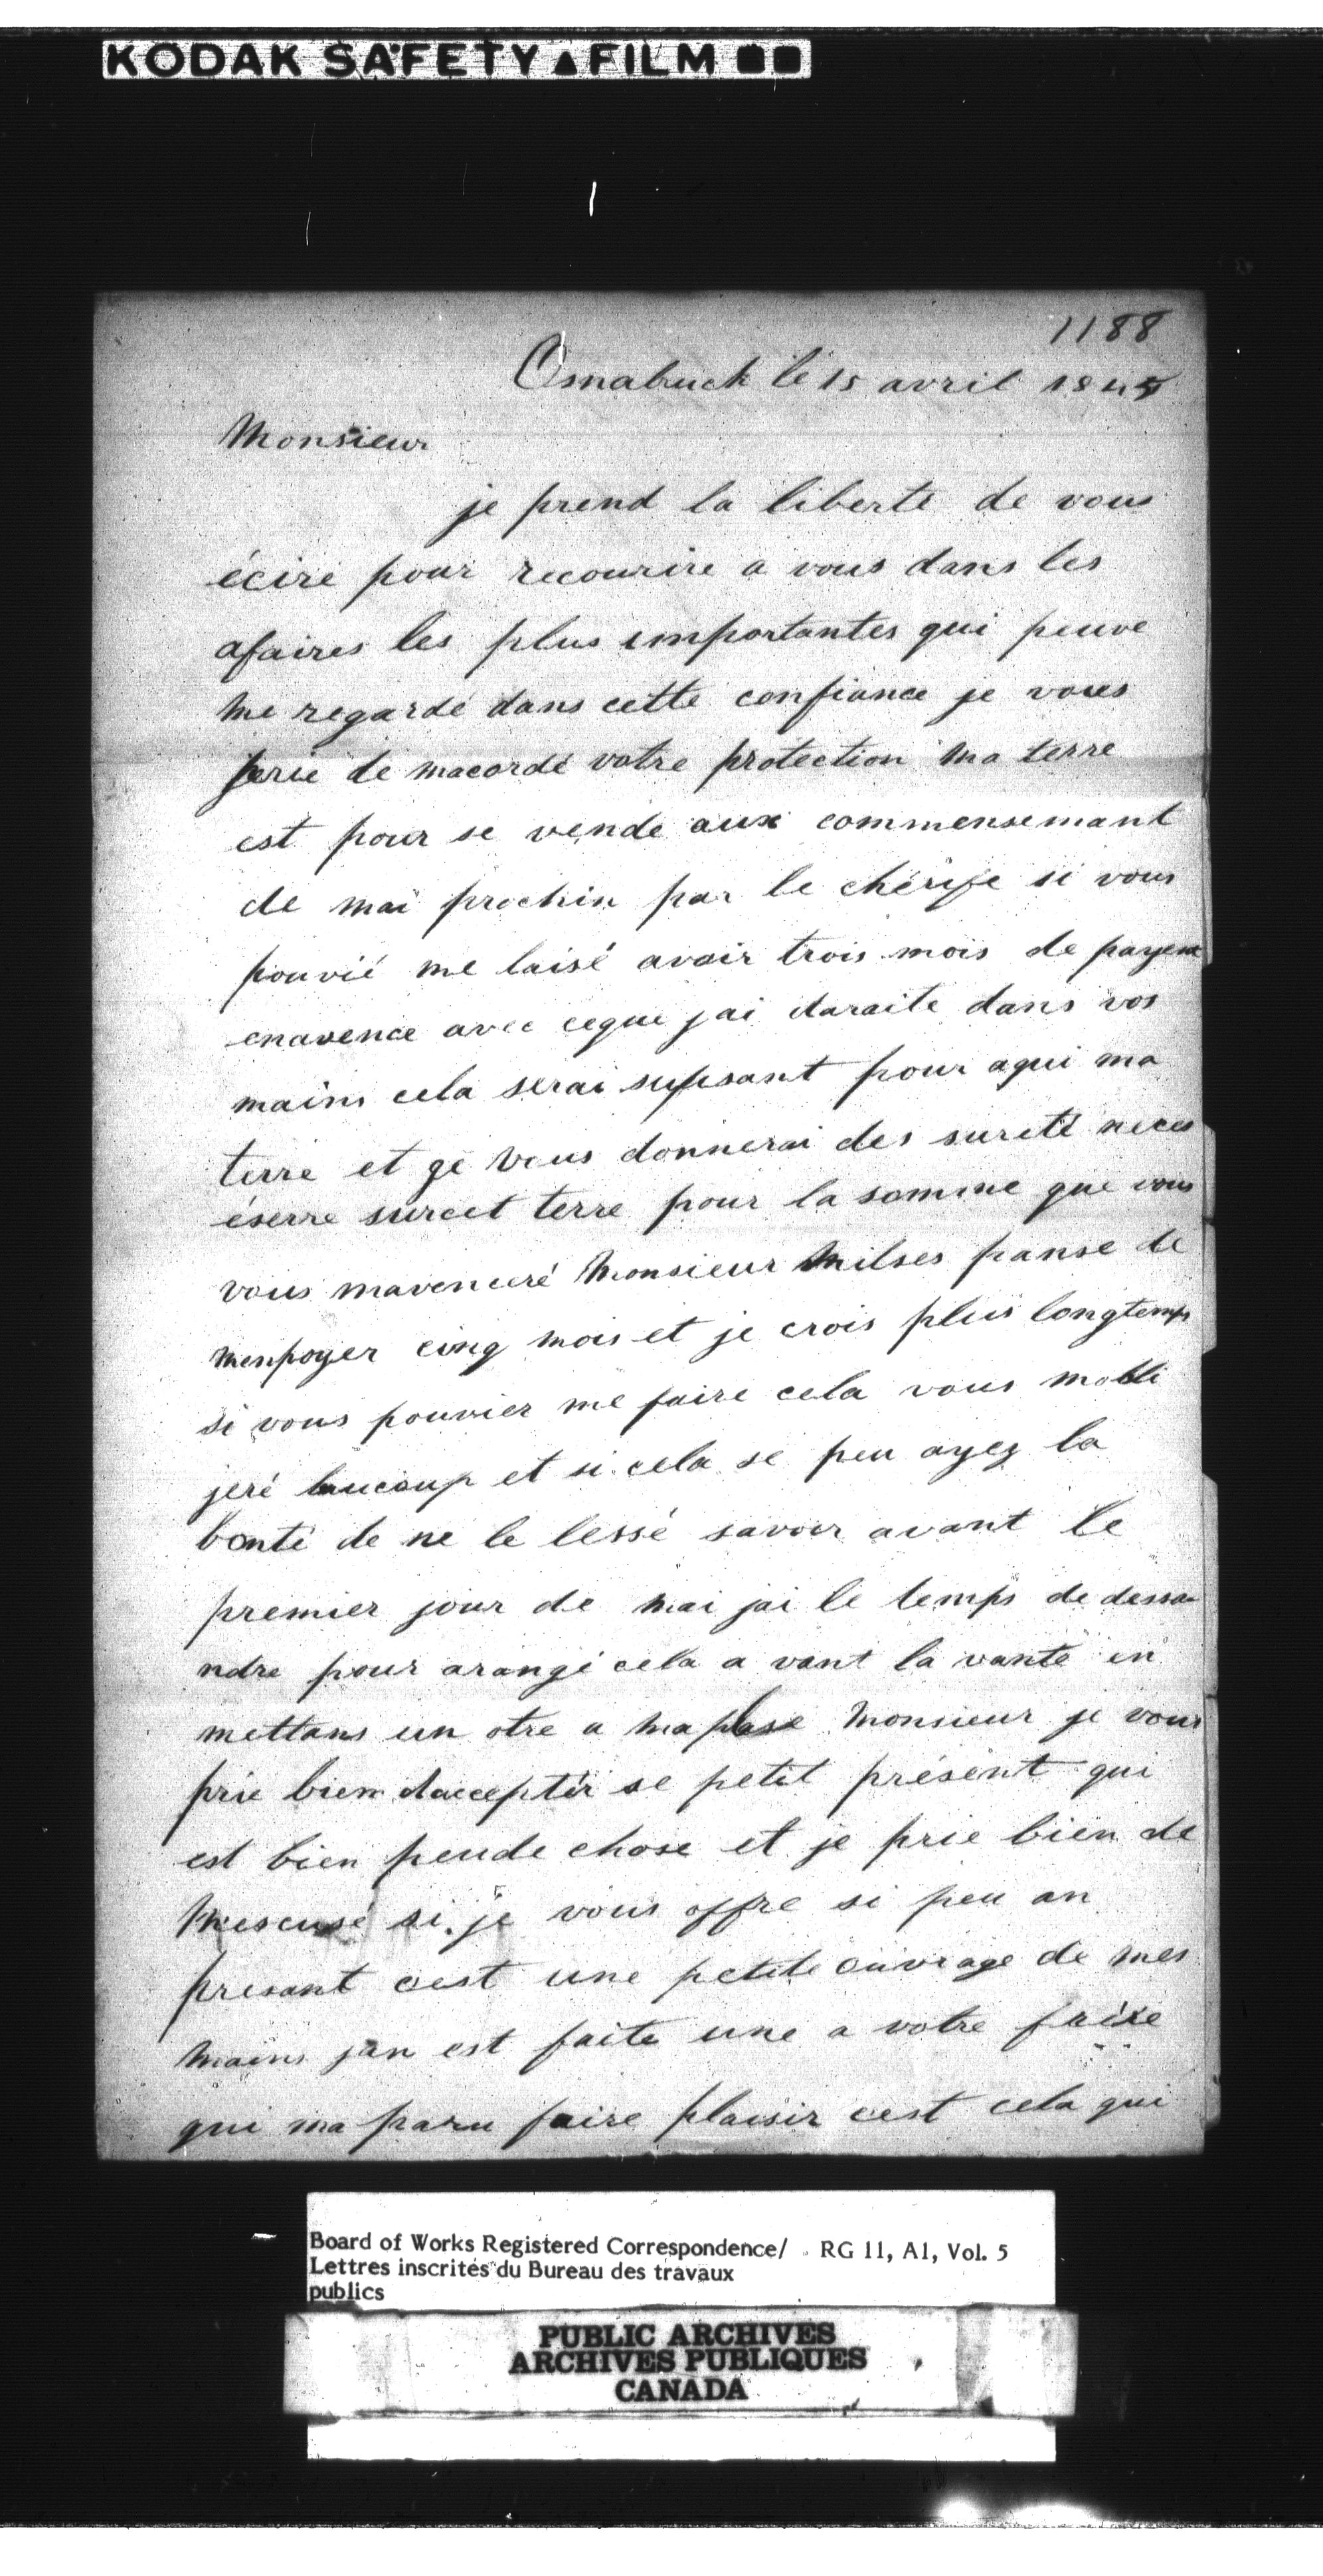 KODAK SAFETY FILM
1188
Osnabruck le 15 avril 1845
Monsieur
je prend la liberte de vous
écire pour recourire a vous dans les
afaires les plus importantes qui peuve
me regardé dans cette confiance je vous
prie de macordé votre protection ma terre
est pour se vende aux commensemant
de mai prochin par le chérife si vous
pouvié me laisé avoir trois mois de payem
enavence avec ceque jai daraite dans vos
mains cela serai sufisant pour aqui ma
terre et ge vous donnerai des sureté neces
éserre surcet terre pour la somme que vous
vous mavenceré Monsieur Milses panse de
menployer cinq mois et je crois plus longtemps
si vous pouvier me faire cela vous mobli
jeré baucoup et si cela se peu ayez la
bonté de me le lessé savoir avant le
premier jour de mai jai le temps de dessa
ndre pour arangé cela a vant la vante en
mettans un otre a ma plase Monsieur je vous
prie bien daccepter se petit présent qui
est bien peude chose et je prie bien de
mescusé si je vous offre si peu an
presant cest une petite ouvrage de mes
mains jan est faite une a votre frixe
qui ma paru faire plaisir cest cela qui
Board of Works Registered Correspondence/ RG 11, A1, Vol. 5
Lettres inscrites du Bureau des travaux
publics
PUBLIC ARCHIVES
ARCHIVES PUBLIQUES
CANADA